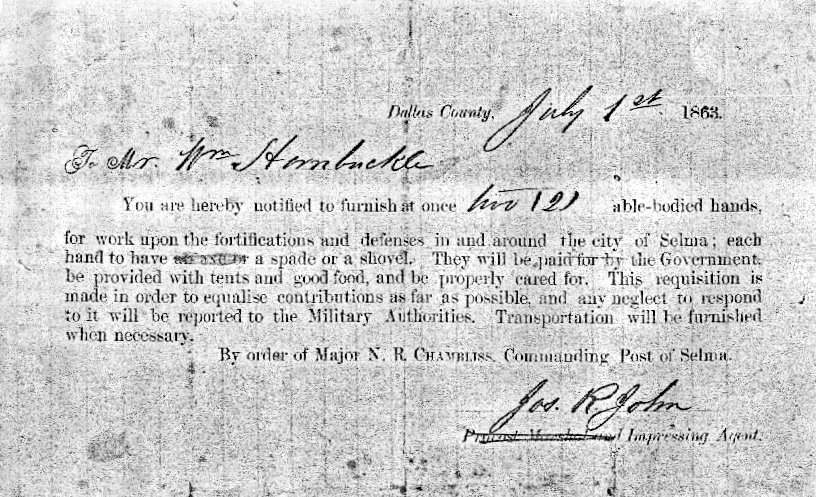 Dallas County, July 1st 1863.
To Mr. Wm Hornbuckle
You are hereby notified to furnish at once two (2) able-bodied hands,
for work upon the fortifications and defenses in and around the city of Selma; each
hand to have an axe or a spade or a shovel. They will be paid for by the Government,
be provided with tents and good food, and be properly cared for. This requisition is
made in order to equalise contributions as far as possible, and any neglect to respond
to it will be reported to the Military Authorities. Transportation will be furnished
when necessary.
By order of Major N. R. CHAMBLISS, Commanding Post of Selma.
Jos. R. John
Provost Marshal and Impressing Agent.